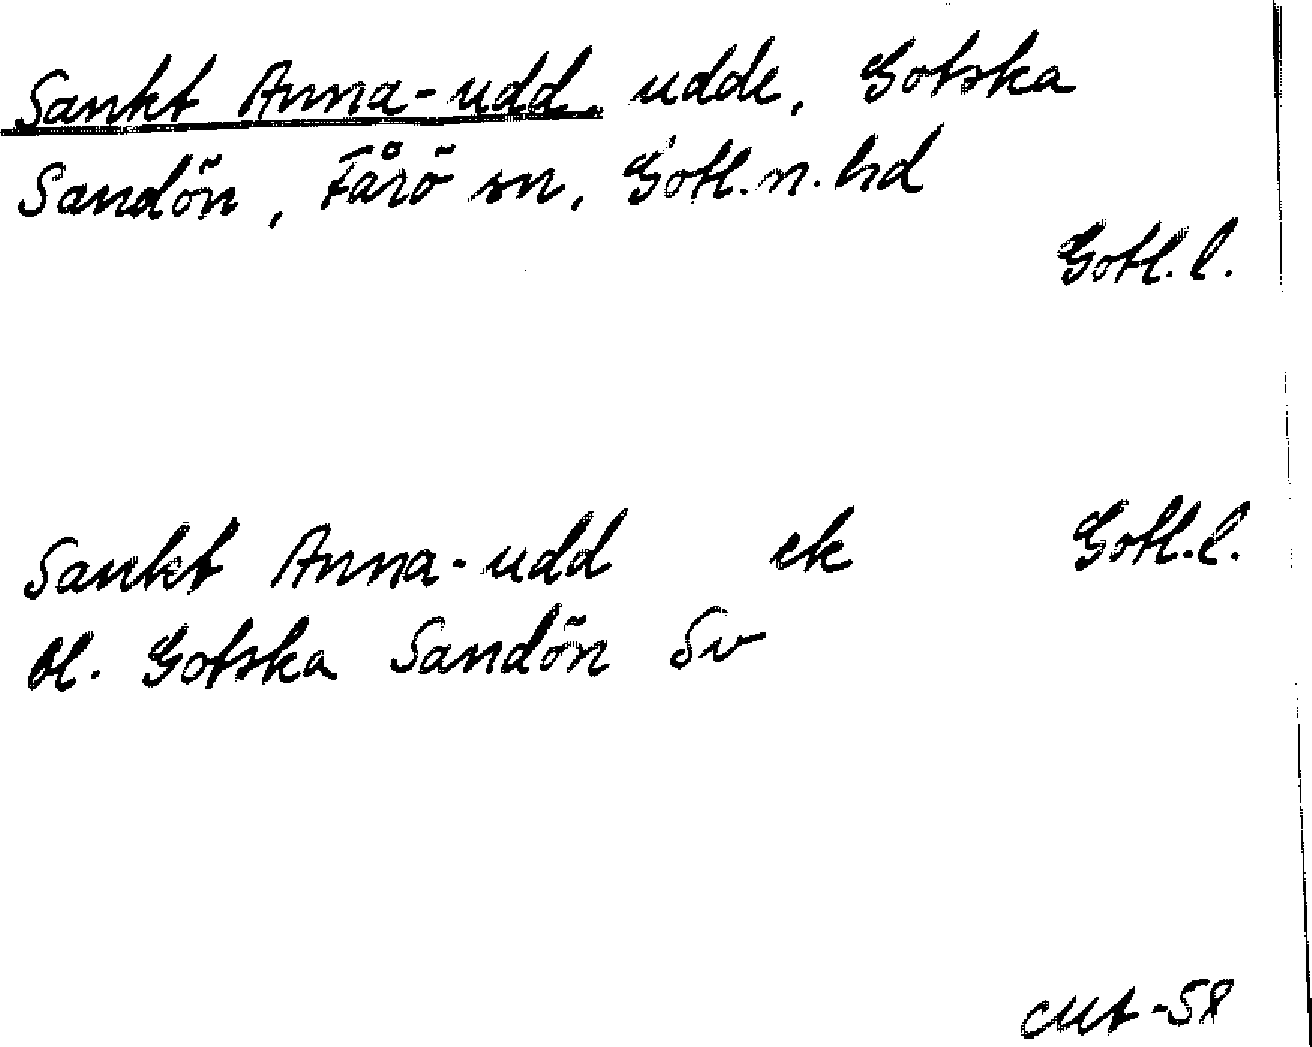 Sankt Anna-udd, udde, Gotska
Sandön, Fårö sn, Gotl.n.hd
Gotl.l.
Sankt Anna-udd ek Gotl.l.
bl. Gotska Sandön Sv
-58